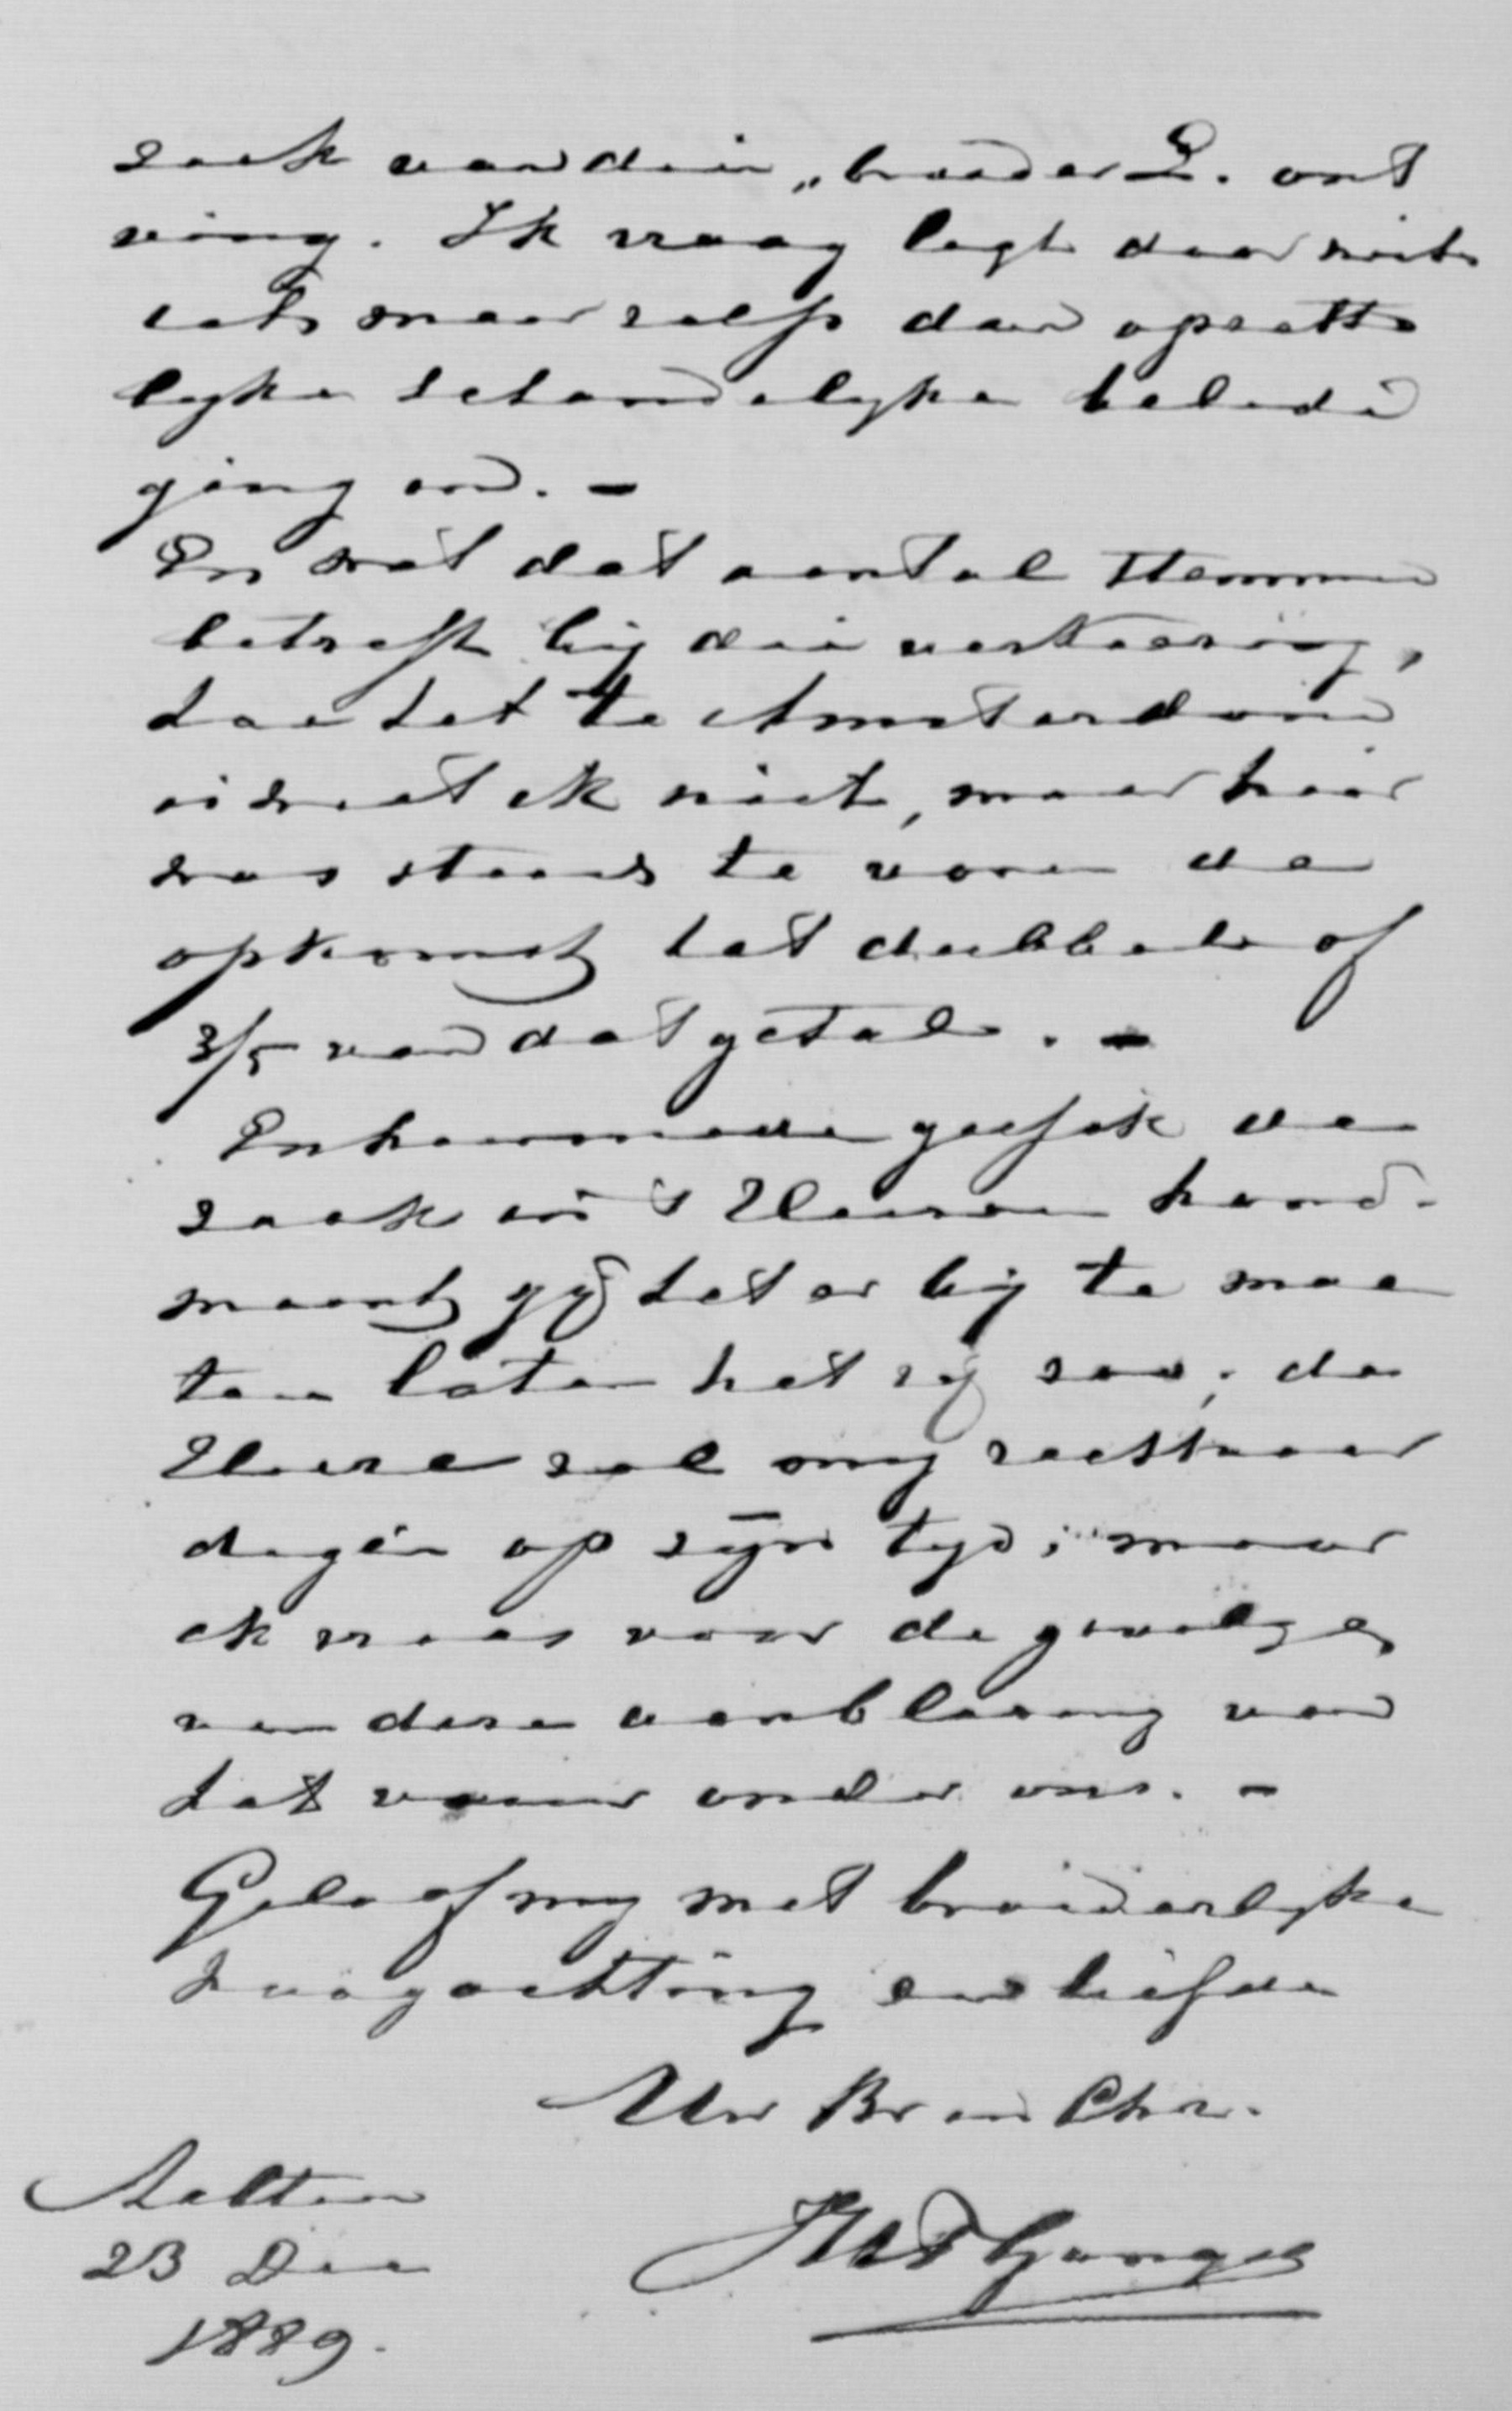 zoek van dien „broeder L. ont
ving. Ik vraag legt daar niet
iets maar zelfs dan opzette
lyke schandelyke beledi
ging in. -
En wat dat aantal stemmen
betreft bij die verkiezing,
hoe het te Amsterdam
is weet ik niet, maar hier
was steeds te voren de
opkomst het dubbele of
3/5 van dat getal. -
En hiermede geef ik de
zaak in 's Heeren hand.
meent gij het er bij te moe
ten laten het zij zoo; de
Heere zal my rechtvaar
digen op zyn tyd; maar
ik vrees voor de gevolgen
van deze aanblazing van
het vuur onder ons. -
Geloof my met broederlyke
hoogachting en liefde
Uw Br in Chr.
Aalten
23 Dec
1889.